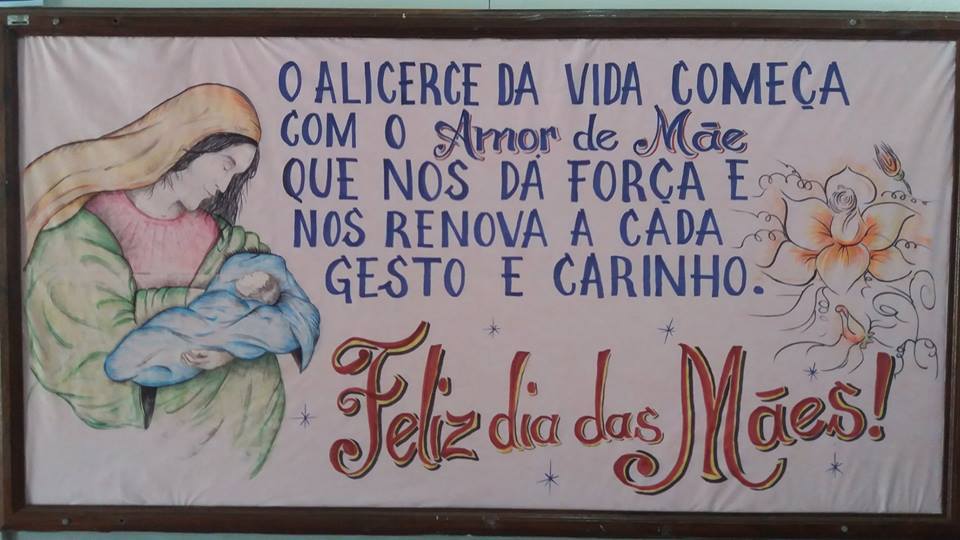 O ALICERCE DA VIDA COMEÇA
COM O Amor de Mãe
QUE NOS DÁ FORÇA E
NOS RENOVA A CADA
GESTO E CARINHO.
Feliz dia das Mães!